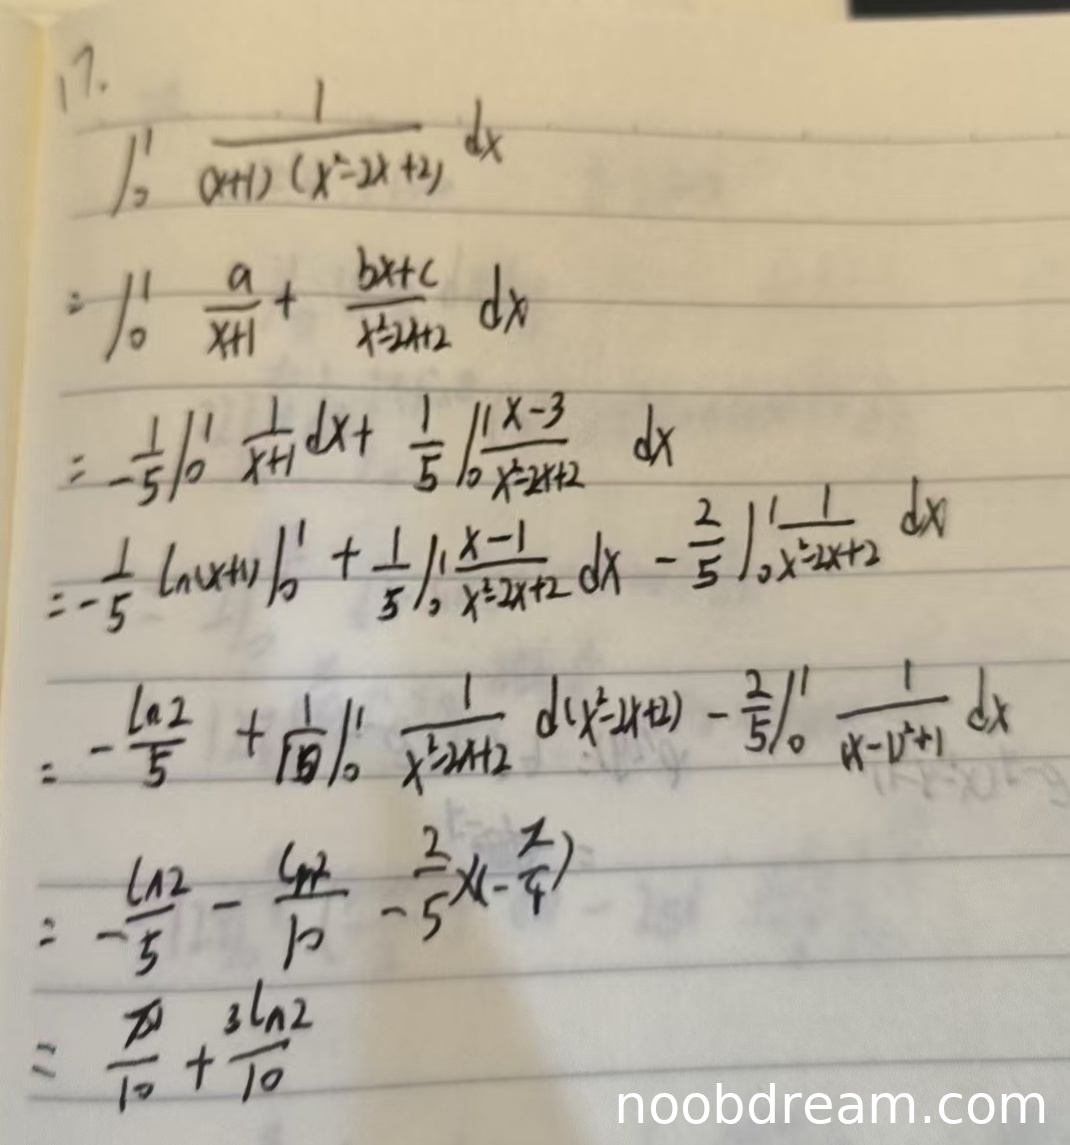 17.
∫₀¹ 1/((x+1)(x²-2x+2)) dx
= ∫₀¹ a/(x+1) + (bx+c)/(x²-2x+2) dx
= -1/5 ∫₀¹ 1/(x+1) dx + 1/5 ∫₀¹ (x-3)/(x²-2x+2) dx
= -1/5 ln(x+1) |₀¹ + 1/5 ∫₀¹ (x-1)/(x²-2x+2) dx - 2/5 ∫₀¹ 1/(x²-2x+2) dx
= -ln2/5 + 1/10 ∫₀¹ 1/(x²-2x+2) d(x²-2x+2) - 2/5 ∫₀¹ 1/((x-1)²+1) dx
= -ln2/5 - ln2/10 - 2/5 x(-π/4)
= π/10 + 3ln2/10
noobdream.com